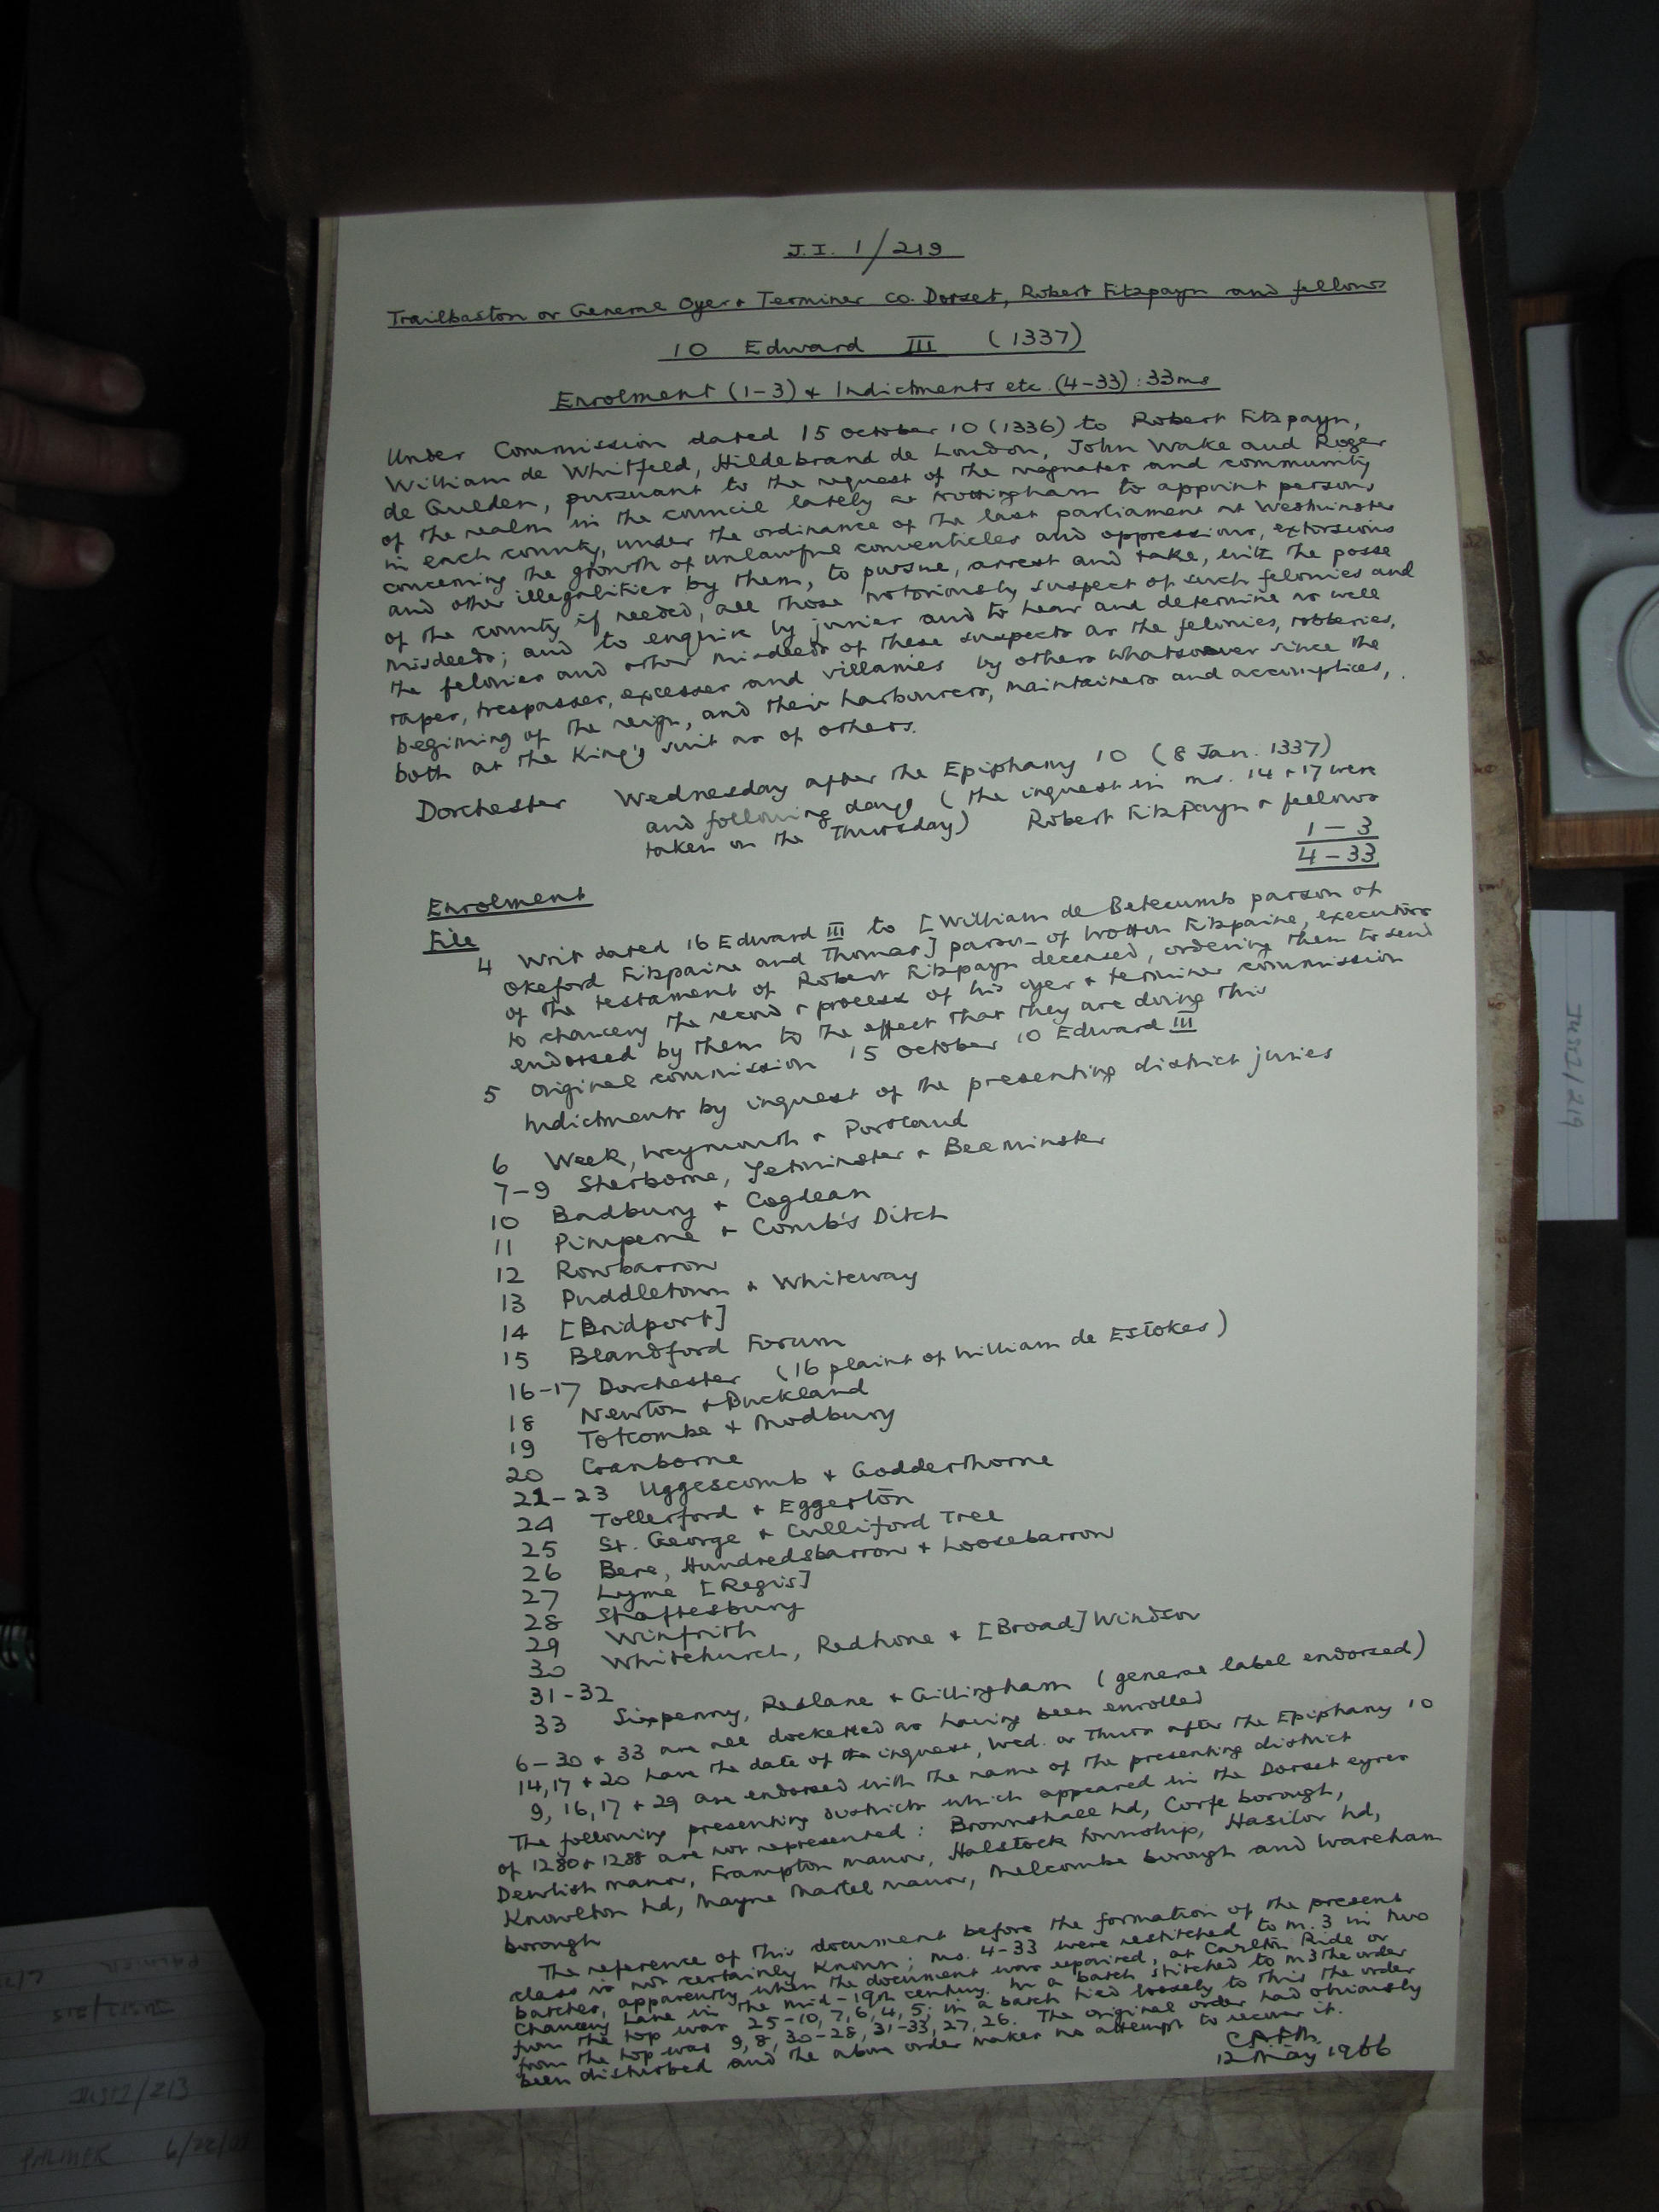 J.I. 1/219
Trailbaston or General Oyer & Terminer co. Dorset, Robert Fitzpayn and fellows
10 Edward III (1337)
Enrolment (1-3) & Indictments etc. (4-33) : 33ms
Under Commission dated 15 October 10 (1336) to Robert Fitzpayn,
William de Whitfeld, Hildebrand de London, John Wake and Roger
de Gulden, pursuant to the request of the magnates and community
of the realm in the council lately at Nottingham to appoint persons
in each county, under the ordinance of the last parliament at Westminster
concerning the growth of unlawful conventicles and oppressions, extorsions
and other illegalities by them, to pursue, arrest and take, with the posse
of the county if needed, all those notoriously suspect of such felonies and
misdeeds; and to enquire by juries and to hear and determine as well
the felonies and other misdeeds of these suspects as the felonies, robberies,
rapes, trespasses, excesses and villanies by others whatsoever since the
begining of the reign, and their harbourers, maintainers and accomplices,
both at the King's suit as of others.
Dorchester Wednesday after the Epiphany 10 (8 Jan. 1337)
and following days (the inquests in ms. 14 & 17 were
taken on the Thursday) Robert Fitzpayn & fellows
1-3
4-33
Enrolment
File
4 Writ dated 16 Edward III to [William de Betecumb parson of
Okeford Fitzpaine and Thomas] parson of Wotton Fitzpaine, executors
of the testament of Robert Fitzpayn deceased, ordering them to send
to chancery the record & process of his oyer & terminer commission
endorsed by them to the effect that they are doing this
5 Original commission 15 October 10 Edward III
Indictments by inquest of the presenting district juries
6 Week, Weymouth & Portland
7-9 Sherborne, Yetminster & Beaminster
10 Badbury & Cogdean
11 Pimperne & Comb's Ditch
12 Rowbarrow
13 Puddletown & Whiteway
14 [Bridport]
15 Blandford Forum
16-17 Dorchester (16 plaint of William de Estokes)
18 Newton & Buckland
19 Totcombe & Modbury
20 Cranborne
21-23 Uggescomb & Godderthorne
24 Tollerford & Eggerton
25 St. George & Culliford Tree
26 Bere, Hundredsbarrow & Loosebarrow
27 Lyme [Regis]
28 Shaftesbury
29 Winfrith
30 Whitchurch, Redhone & [Broad]Windsor
31-32
33 Sixpenny, Redlane & Gillingham (general label endorsed)
6-30 & 33 are all docketted as having been enrolled
14, 17 & 20 have the date of the inquest, Wed. or Thurs after the Epiphany 10
9, 16, 17 & 29 are endorsed with the name of the presenting district
The following presenting districts which appeared in the Dorset eyres
of 1280 & 1288 are not represented : Brownshall hd, Corfe borough,
Dewlish manor, Frampton manor, Halstock township, Hasilor hd,
Knowlton hd, Mayne Martel manor, Melcombe borough and Wareham
borough
The reference of this document before the formation of the present
class is not certainly known; ms. 4-33 were restitched to m. 3 in two
batches, apparently when the document was repaired, at Carlton Ride or
Chancery Lane in the mid-19th century. In a batch stitched to m3 the order
from the top was 25-10, 7, 6, 4, 5; in a batch tied loosely to this the order
from the top was 9, 8, 30-28, 31-33, 27, 26. The original order had obviously
been disturbed and the above order makes no attempt to recover it.
12 May 1966
JUST1/219
JUST1/213
PALMER 6/22/